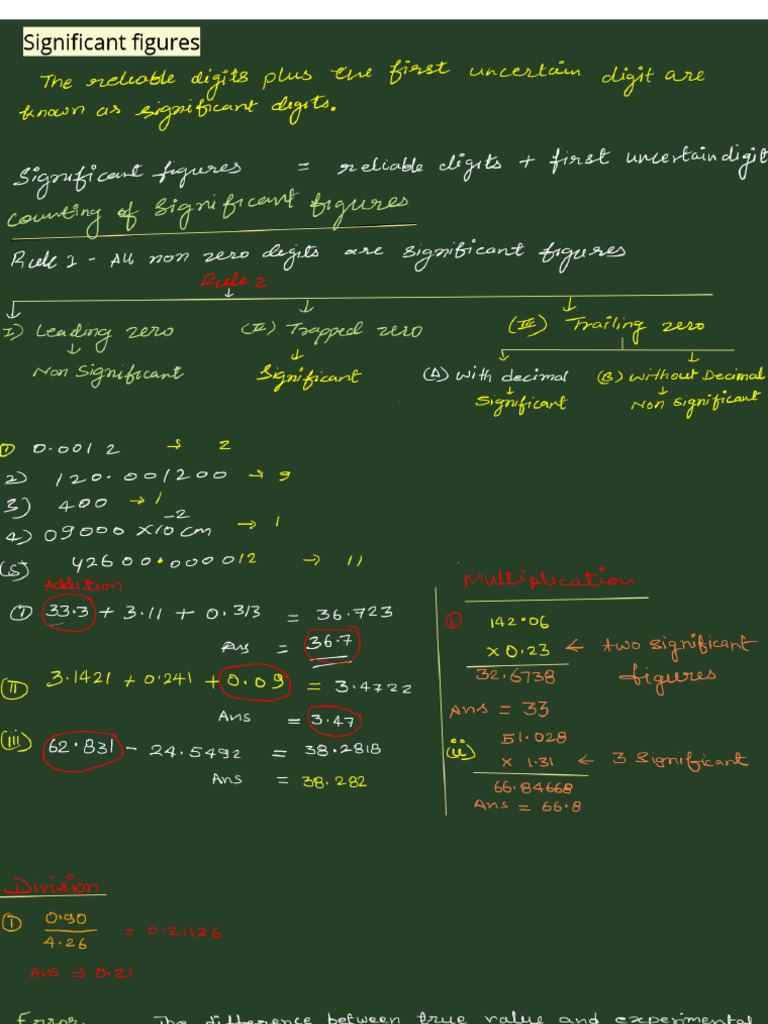 Significant figures
The reliable digits plus the first uncertain digit are
known as significant digits.
Significant figures = reliable digits + first uncertain digit
Counting of Significant figures
Rule 1 - All non zero digits are significant figures
Rule 2
I) Leading zero (II) Trapped zero (III) Trailing zero
Non Significant Significant (A) with decimal (B) without Decimal
Significant Non Significant
① 0.0012 → 2
2) 120.001200 → 9
3) 400 → 1
4) 09000 x10⁻² cm → 1
(5) 42600.000012 → 11
Addition
① 33.3 + 3.11 + 0.313 = 36.723
Ans = 36.7
(II) 3.1421 + 0.241 + 0.09 = 3.4722
Ans = 3.47
(iii) 62.831 - 24.5492 = 38.2818
Ans = 38.282
Multiplication
① 142.06
x 0.23 ← two significant
32.6738 figures
Ans = 33
(ii) 51.028
x 1.31 ← 3 Significant
66.84668
Ans = 66.8
Division
① 0.90
4.26 = 0.21126
Ans ⇒ 0.21
Error The difference between true value and experimental